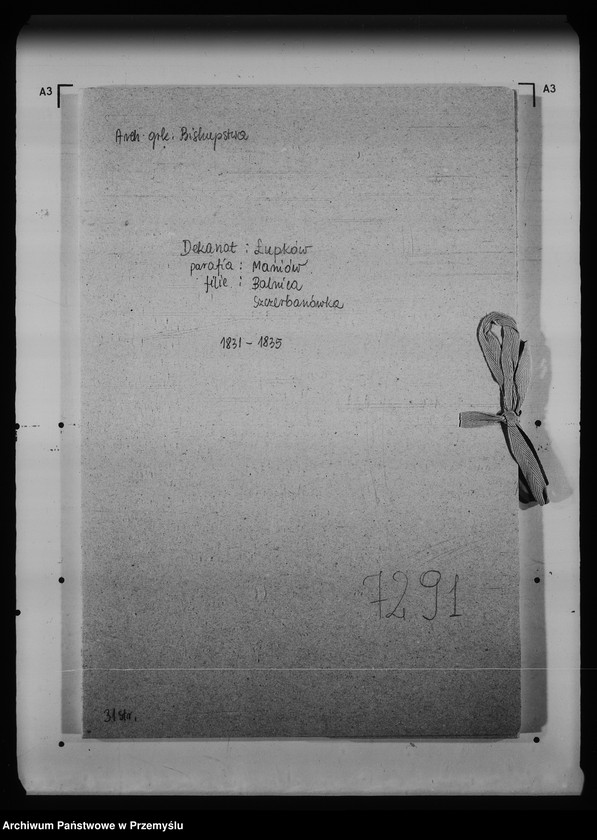 A3
A3
Arch. grk. Biskupstwa
Dekanat : Łupków
parafia : Maniów
filie : Balnica
Szczerbanówka
1831 - 1835
7291
31 str.
Archiwum Państwowe w Przemyślu